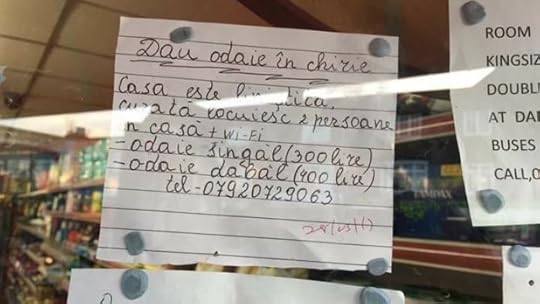 Dau odaie în chirie
Casa este liniștica,
curată locuiesc 2 persoane
în casă + Wi-Fi
-odaie singăl (300 lire)
-odaie dabăl (400 lire)
tel-07920729063
ROOM
KINGSIZ
DOUBLE
AT DA
BUSES
CALL,0